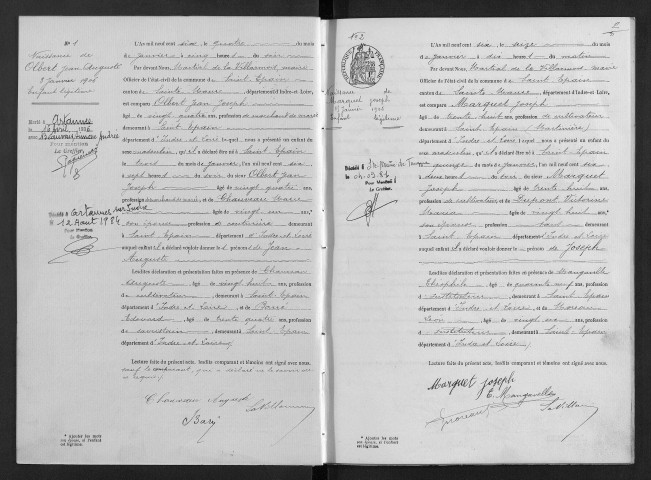 N° 1
Naissance de
Olbert Jean Auguste
3 Janvier 1906
Enfant légitime
Marié à
Pour mention
Le Greffier
Décédé à
12 Août 1984
Pour Mention
Le Greffier
L'An mil neuf cent six, le quatre du mois
de janvier à cinq heures du soir
Par devant Nous, Martial de la Villarmois, maire
Officier de l'état-civil de la commune de Saint Epain
canton de Sainte Maure, département d'Indre-et-Loire, est
comparu Olbert Jean Joseph
âgé de vingt quatre ans, profession de marchand de
demeurant à Saint Epain
département d'Indre et Loire, lequel nous a présenté un enfant du sexe
masculin, qu'il a déclaré être né à Saint Epain
le trois du mois de janvier, l'an mil neuf cent six
à sept heures du soir, de Olbert Jean
Joseph, âgé de vingt quatre ans,
profession et Chauveau Marie
âgée de vingt un ans, *
son épouse, profession de couturière, demeurant
à Saint Epain, département d'Indre et Loire
auquel enfant il a déclaré vouloir donner les prénoms de Jean
Auguste
Lesdites déclaration et présentation faites en présence de Chauveau
Auguste, âgé de vingt huit ans, profession
de cultivateur, demeurant à Saint Epain
département d'Indre et Loire, et de Barré
Edouard, âgé de trente quatre ans, profession
de, demeurant à Saint Epain
département d'Indre et Loire
Lecture faite du présent acte, lesdits comparant et témoins ont signé avec nous,
sauf le comparant, qui a déclaré ne le savoir
Chauveau Auguste
* Ajouter les mots
son épouse, et l'enfant
est légitime.
N° 2
Naissance de
Marquet Joseph
Janvier 1906
Enfant légitime
Décédé à St Pierre des Corps
Pour Mention
Le Greffier
L'An mil neuf cent six, le seize du mois
de janvier à dix heures du matin
Par devant Nous, Martial de la Villarmois, maire
Officier de l'état-civil de la commune de Saint Epain
canton de Sainte Maure, département d'Indre-et-Loire,
est comparu Marquet Joseph
âgé de trente huit ans, profession de cultivateur
demeurant à Saint Epain
département d'Indre et Loire, lequel nous a présenté un enfant du sexe
masculin, qu'il a déclaré être né à Saint Epain
le quinze du mois de janvier, l'an mil neuf cent six
à deux heures du soir, de Marquet
Joseph, âgé de trente huit ans,
profession de cultivateur et Dupont Victorine
Maria, âgée de vingt huit ans, *
son épouse, profession, demeurant
à Saint Epain, département d'Indre et Loire
auquel enfant il a déclaré vouloir donner le prénom de Joseph
Lesdites déclaration et présentation faites en présence de
Théophile, âgé de quarante neuf ans, profession
d'instituteur, demeurant à Saint Epain
département d'Indre et Loire, et de
Léon, âgé de vingt ans, profession
d'instituteur, demeurant à Saint Epain
département d'Indre et Loire
Lecture faite du présent acte, lesdits comparant et témoins ont signé avec nous.
Marquet Joseph
* Ajouter les mots
son épouse, et l'enfant
est légitime.